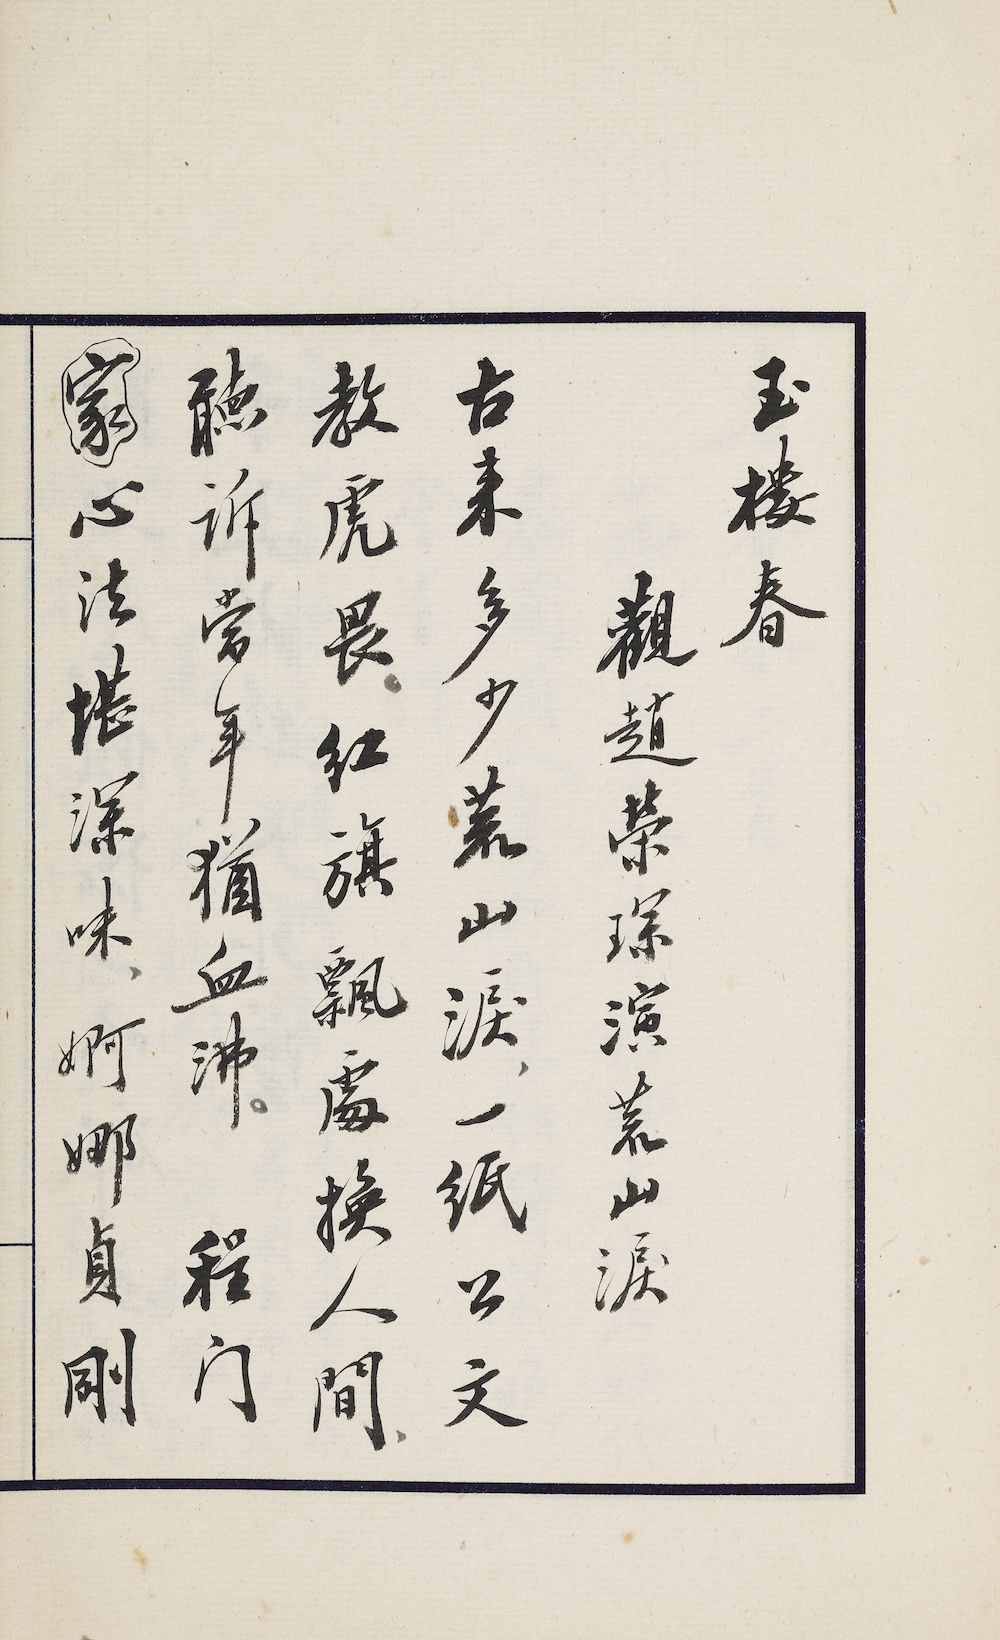 玉楼春
觀趙榮琛演荒山淚
古来多少荒山淚、一紙公文
教虎畏。紅旗飄處換人間、
聽訴當年猶血沸。 程门
家心法堪深味、婀娜貞剛